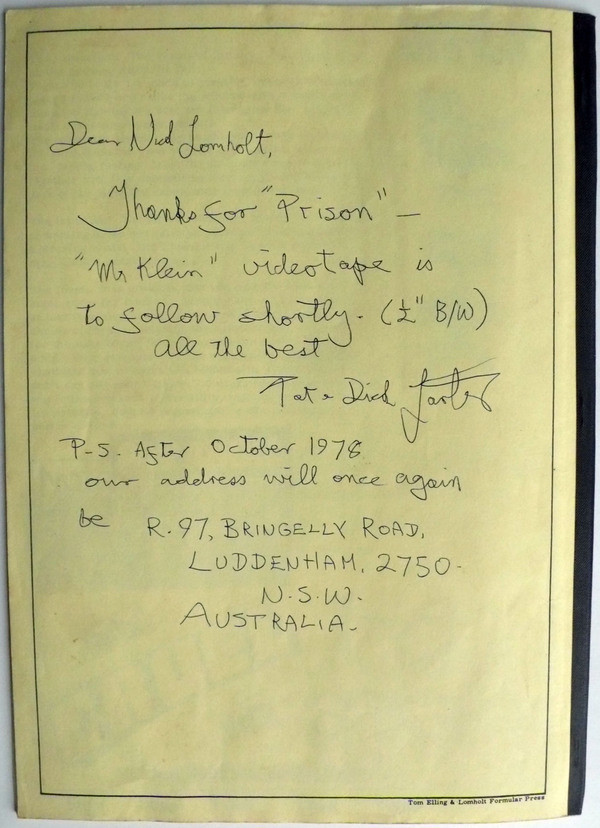 Dear Niel Lomholt,
Thanks for "Prison" —
"Mr Klein" videotape is
to follow shortly. (½" B/W)
all the best
Pat & Dick Larter
P-S. After October 1978
our address will once again
be R.97, BRINGELLY ROAD,
LUDDENHAM, 2750-
N.S.W.
AUSTRALIA-
Tom Elling & Lomholt Formular Press